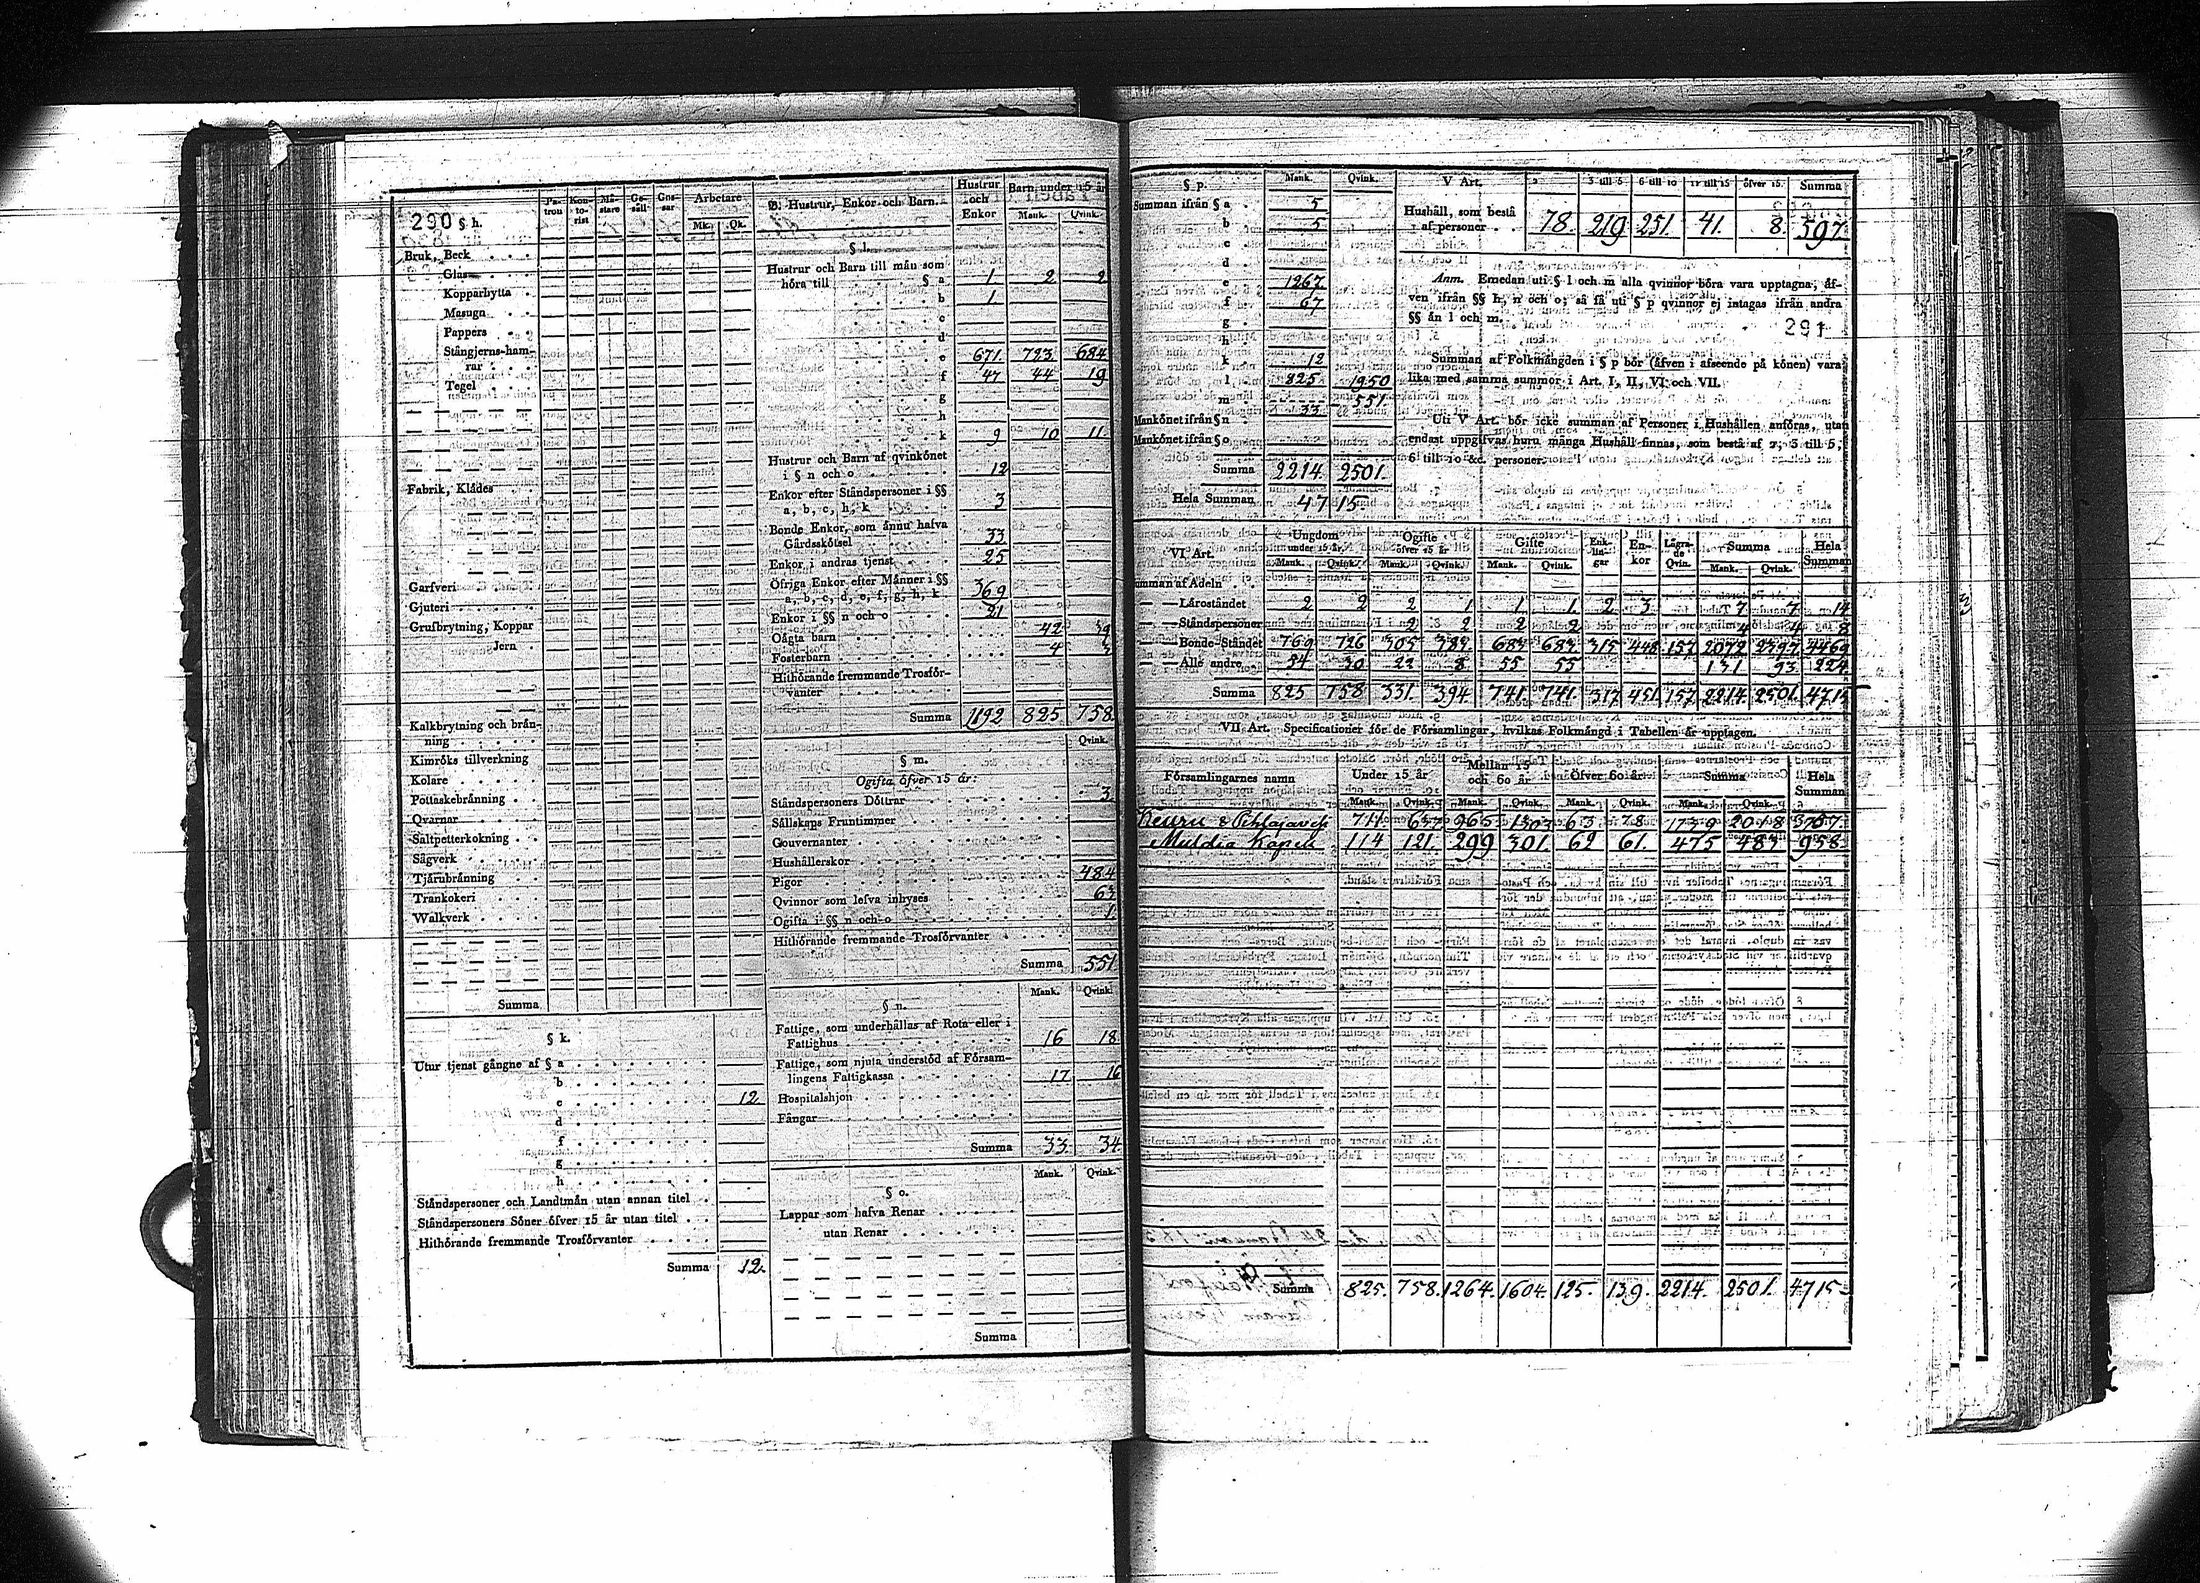 290 § h. Pa-tron Kon-to-rist Mä-stare Ge-säll Gos-sar Arbetare Mk. Qk.
Bruk, Beck
Glas
Kopparhytta
Masugn
Pappers
Stångjerns-ham-
rar
Tegel
Fabrik, Klädes
Garfveri
Gjuteri
Grufbrytning, Koppar
Jern
Kalkbrytning och brän-
ning
Kimröks tillverkning
Kolare
Pottaskebränning
Qvarnar
Saltpetterkokning
Sågverk
Tjärubränning
Trankokeri
Walkverk
Summa
§ k.
Utur tjenst gångne af § a
b
c 12
d
f
g
h
Ståndspersoner och Landtmän utan annan titel
Ståndspersoners Söner öfver 15 år utan titel
Hithörande fremmande Trosförvanter
Summa 12.
B. Hustrur, Enkor och Barn. Hustrur och Enkor Barn under 15 år Mank. Qvink.
§ l.
Hustrur och Barn till män som
höra till § a 1 2 2
b 1
c
d
e 671. 723. 684
f 47 44 19
g
h
k 9 10 11.
Hustrur och Barn af qvinkönet
i § n och o 12
Enkor efter Ståndspersoner i §§
a, b, c, h, k 3
Bonde Enkor, som ännu hafva
Gårdsskötsel 33
Enkor i andras tjenst 25
Öfriga Enkor efter Männer i §§
a, b, c, d, e, f, g, h, k 369
Enkor i §§ n och o 21
Oägta barn 42 39
Fosterbarn 4 3
Hithörande fremmande Trosför-
vanter
Summa 1192 825 758.
§ m. Qvink.
Ogifta öfver 15 år:
Ståndspersoners Döttrar 3.
Sällskaps Fruntimmer
Gouvernanter
Hushållerskor
Pigor 484
Qvinnor som lefva inhyses 63
Ogifta i §§ n och o 1
Hithörande fremmande Trosförvanter
Summa 551.
§ n. Mank. Qvink.
Fattige, som underhållas af Rota eller i
Fattighus 16 18
Fattige, som njuta understöd af Försam-
lingens Fattigkassa 17 16
Hospitalshjon
Fångar
Summa 33. 34.
§ o. Mank. Qvink.
Lappar som hafva Renar
utan Renar
Summa
§ p. Mank. Qvink.
Summan ifrån § a 5
b 5
c
d
e 1267.
f 67
g
h
k 12
l 825 1950
m 551.
Mankönet ifrån § n 33
Mankönet ifrån § o
Summa 2214 2501.
Hela Summan 4715
V Art. 3 till 5 6 till 10 11 till 15 öfver 15. Summa
Hushåll, som bestå
af personer 78. 219 251. 41. 8. 597.
Anm. Emedan uti § l och m alla qvinnor böra vara upptagna, äf-
ven ifrån §§ h, n och o; så få uti § p qvinnor ej intagas ifrån andra
§§ än l och m.
291
Summan af Folkmängden i § p bör (äfven i afseende på könen) vara
lika med samma summor i Art. I, II, VI och VII.
Uti V Art. bör icke summan af Personer i Hushållen anföras, utan
endast uppgifvas huru många Hushåll finnas, som bestå af 2, 3 till 5,
6 till 10 &c. personer.
VI. Art. Ungdom under 15 år. Ogifte öfver 15 år Gifte Enk-lin-gar En-kor Lägra-de Qvin. Summa Hela Summan
Mank. Qvink. Mank. Qvink. Mank. Qvink. Mank. Qvink.
Summan af Adeln
Läroståndet 2 2 2 1 1 1 2 3 7 7 14
Ståndspersoner 2 2 2 2 4 4 8
Bonde-Ståndet 769 726 305 383. 683. 683. 315 448 157 2072 2397 4469
Alle andre 54 30 22 8 55 55 131 93 224
Summa 825 758 331. 394 741. 741. 317 451. 157 2214. 2501. 4715
VII Art. Specificationer för de Församlingar, hvilkas Folkmängd i Tabellen är upptagen.
Församlingarnes namn Under 15 år Mellan 15 och 60 år Öfver 60 år Summa Hela Summan
Mank. Qvink. Mank. Qvink. Mank. Qvink. Mank. Qvink.
Keuru & Pihlajavesi 711. 637 965 1303 63 78 1739 2018 3757.
Muldia Kapell 114 121. 299 301. 62 61. 475 483 958.
Summa 825. 758. 1264. 1604. 125. 139. 2214. 2501. 4715